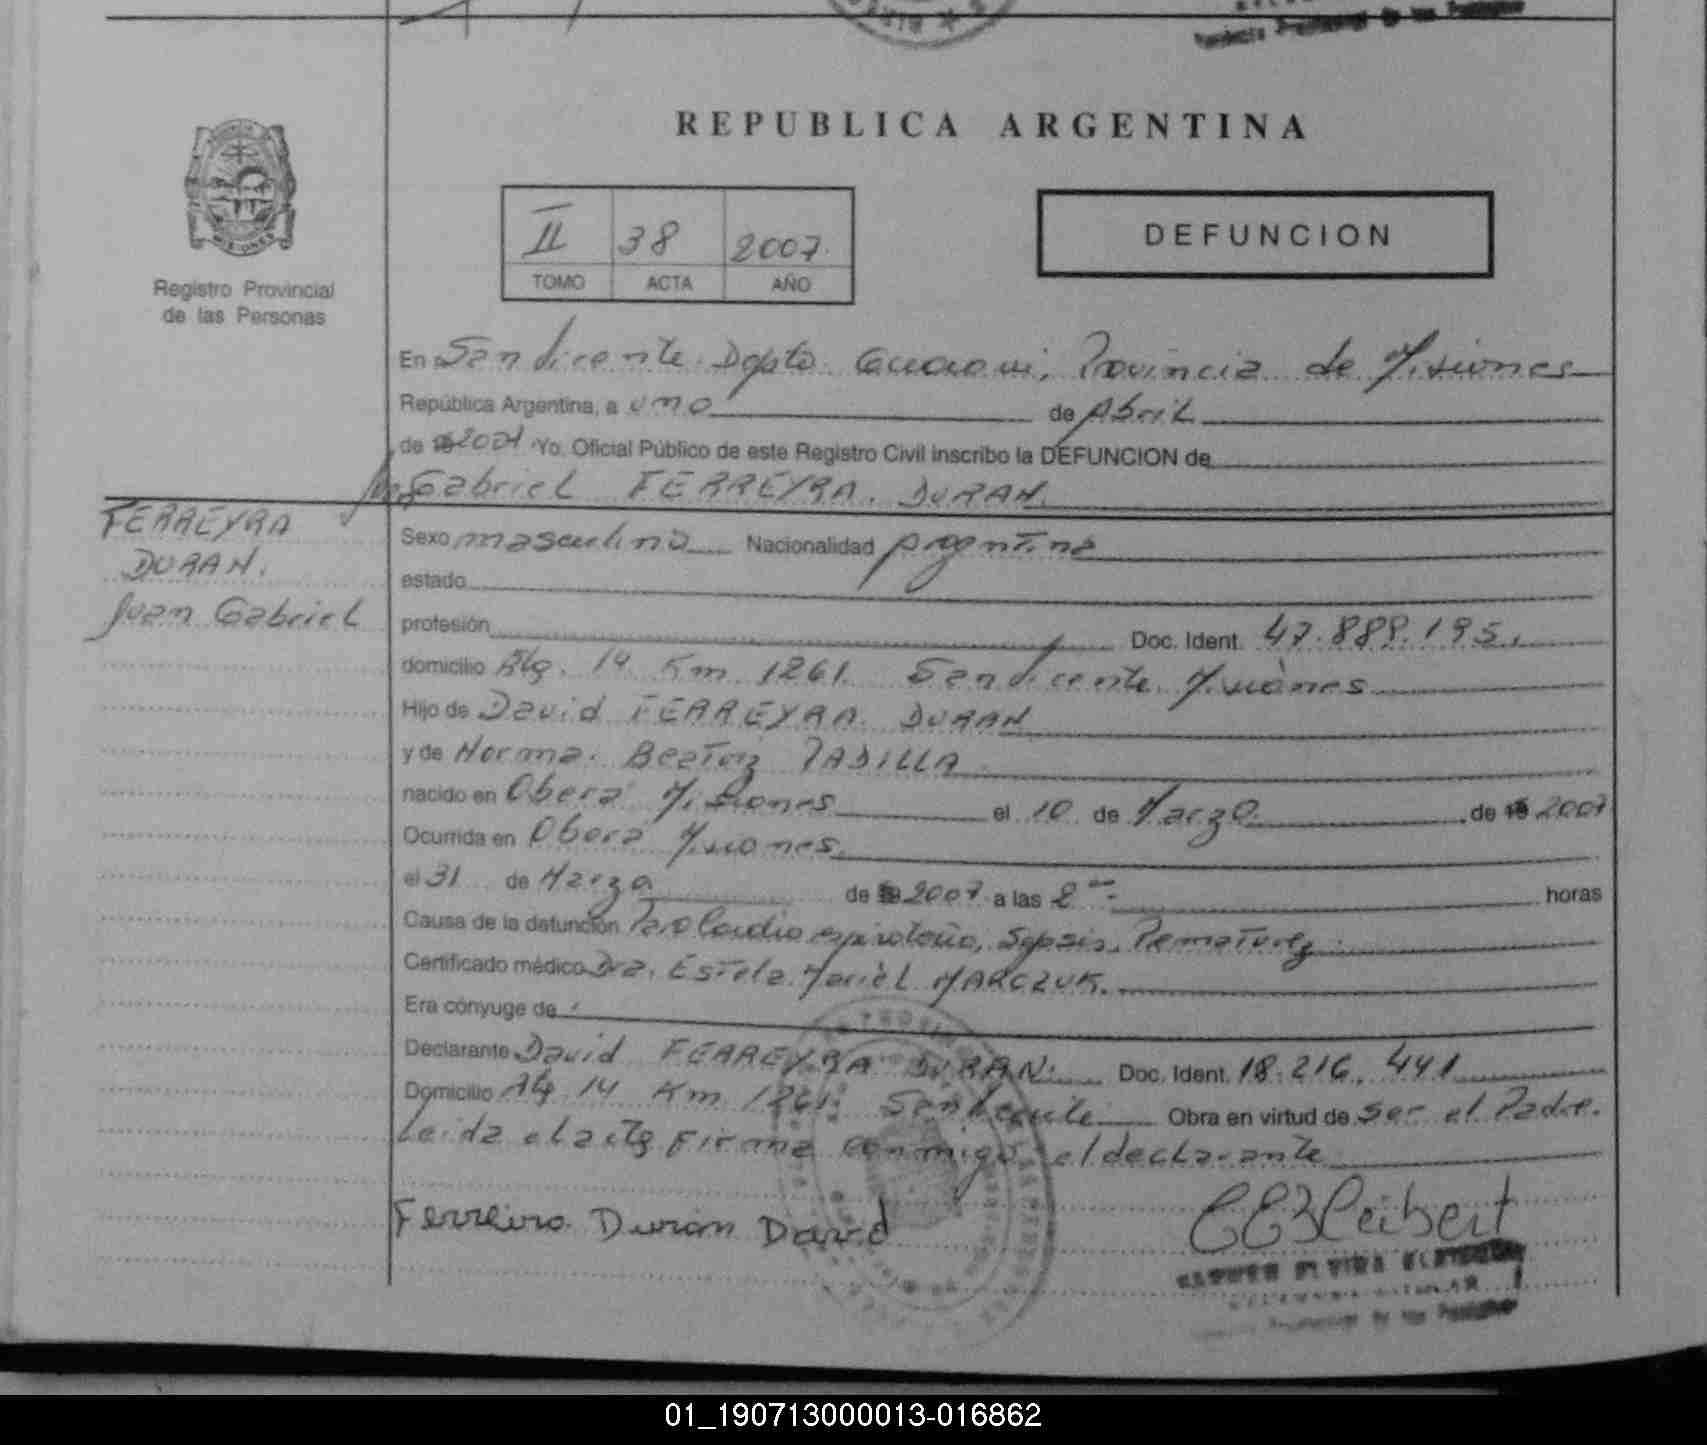 REPUBLICA ARGENTINA
MISIONES
Registro Provincial
de las Personas
II 38 2007
TOMO ACTA AÑO
DEFUNCION
En San Vicente Dpto Guarani, Provincia de Misiones
República Argentina, a uno de Abril
de 2007 Yo. Oficial Público de este Registro Civil inscribo la DEFUNCION de
Juan Gabriel FERREYRA DURAN
FERREYRA
DURAN.
Juan Gabriel
Sexo masculino Nacionalidad Argentina
estado
profesión Doc. Ident. 47.889.195.
domicilio Rta. 14 Km 1261. San Vicente Misiones
Hijo de David FERREYRA DURAN
y de Norma Beatriz PADILLA
nacido en Obera Misiones el 10 de Marzo de 19 2007
Ocurrida en Obera Misiones
el 31 de Marzo de 2007 a las 8 horas
Causa de la defunción Paro Cardio respiratorio, Sepsis, Prematurez
Certificado médico Dra. Estela Mariel MARCZUK.
Era cónyuge de
Declarante David FERREYRA DURAN. Doc. Ident. 18.216.441
Domicilio Rta 14 Km 1261. San Vicente Obra en virtud de ser el Padre.
Leida el acta firma conmigo el declarante
Ferreira Duran David
01_190713000013-016862